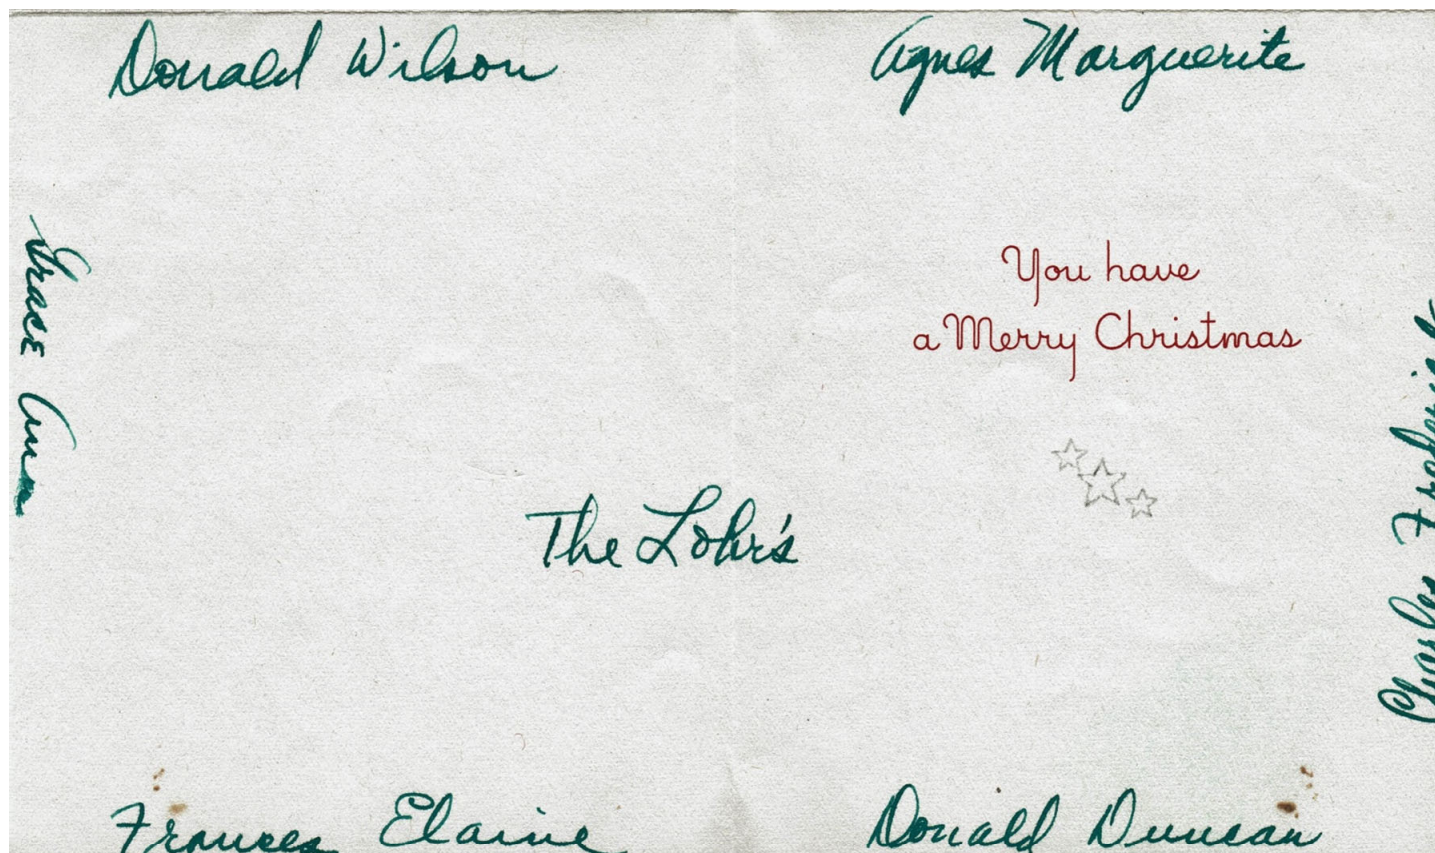 Donald Wilson
Agnes Marguerite
Grace Ann
You have
a Merry Christmas
The Lohr's
Charles Frederick
Frances Elaine
Donald Duncan